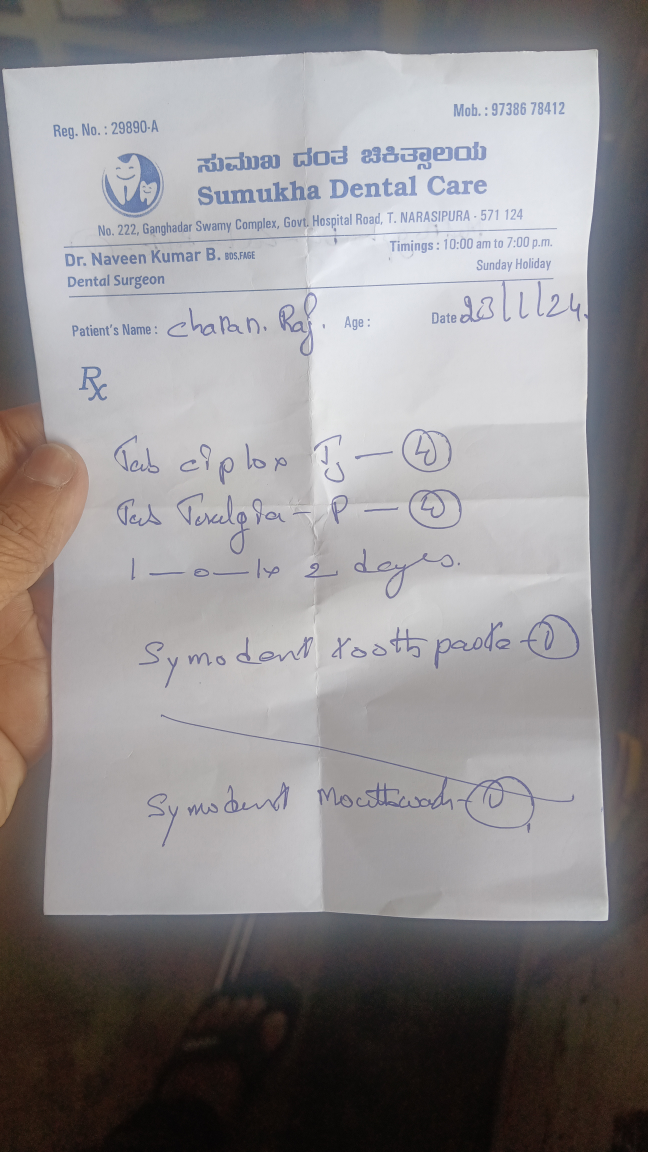 Mob. : 97386 78412
Reg. No. : 29890-A
ಸುಮುಖ ದಂತ ಚಿಕಿತ್ಸಾಲಯ
Sumukha Dental Care
No. 222, Ganghadar Swamy Complex, Govt. Hospital Road, T. NARASIPURA - 571 124
Dr. Naveen Kumar B. BDS,FAGE
Timings : 10:00 am to 7:00 p.m.
Dental Surgeon
Sunday Holiday
Patient's Name : Charan. Raj. Age : Date 23/1/24.
Rx
Tab ciplox TZ — 4
Tab - P — 4
1 — 0 — 1 x 2 days.
Symodent tooth paste - 1
Symodent Mouthwash - 1